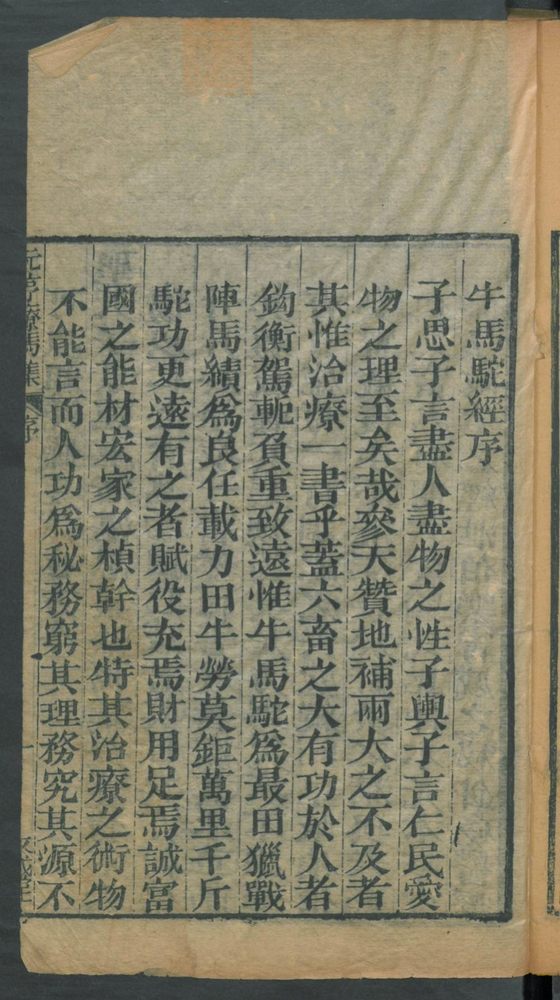 牛馬駝經序
子思子言盡人盡物之性子輿子言仁民愛
物之理至矣哉參天贊地補兩大之不及者
其惟治療一書乎蓋六畜之大有功於人者
鈞衡駕軛負重致遠惟牛馬駝爲最田獵戰
陣馬績爲良任載力田牛勞莫鉅萬里千斤
駝功更遠有之者賦役充焉財用足焉誠富
國之能材宏家之楨幹也特其治療之術物
不能言而人功爲秘務窮其理務究其源不
元亨療馬集 序 一